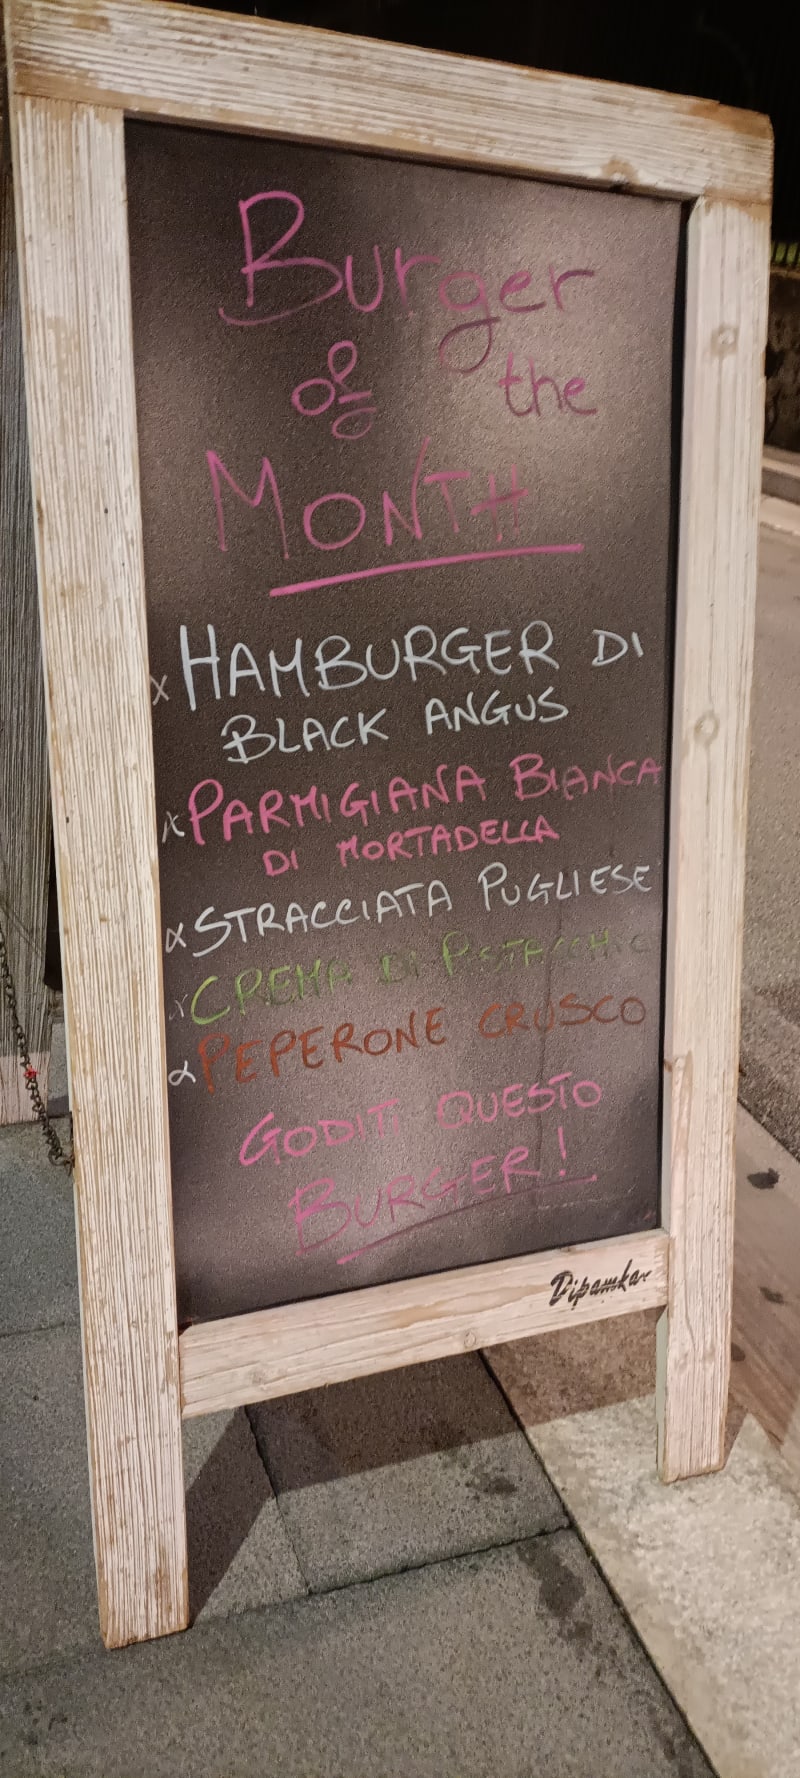 Burger
of the
MONTH
x HAMBURGER DI
BLACK ANGUS
x PARMIGIANA BIANCA
DI MORTADELLA
x STRACCIATA PUGLIESE
x CREMA DI PISTACCHIO
x PEPERONE CRUSCO
GODITI QUESTO
BURGER!
Dipamkar